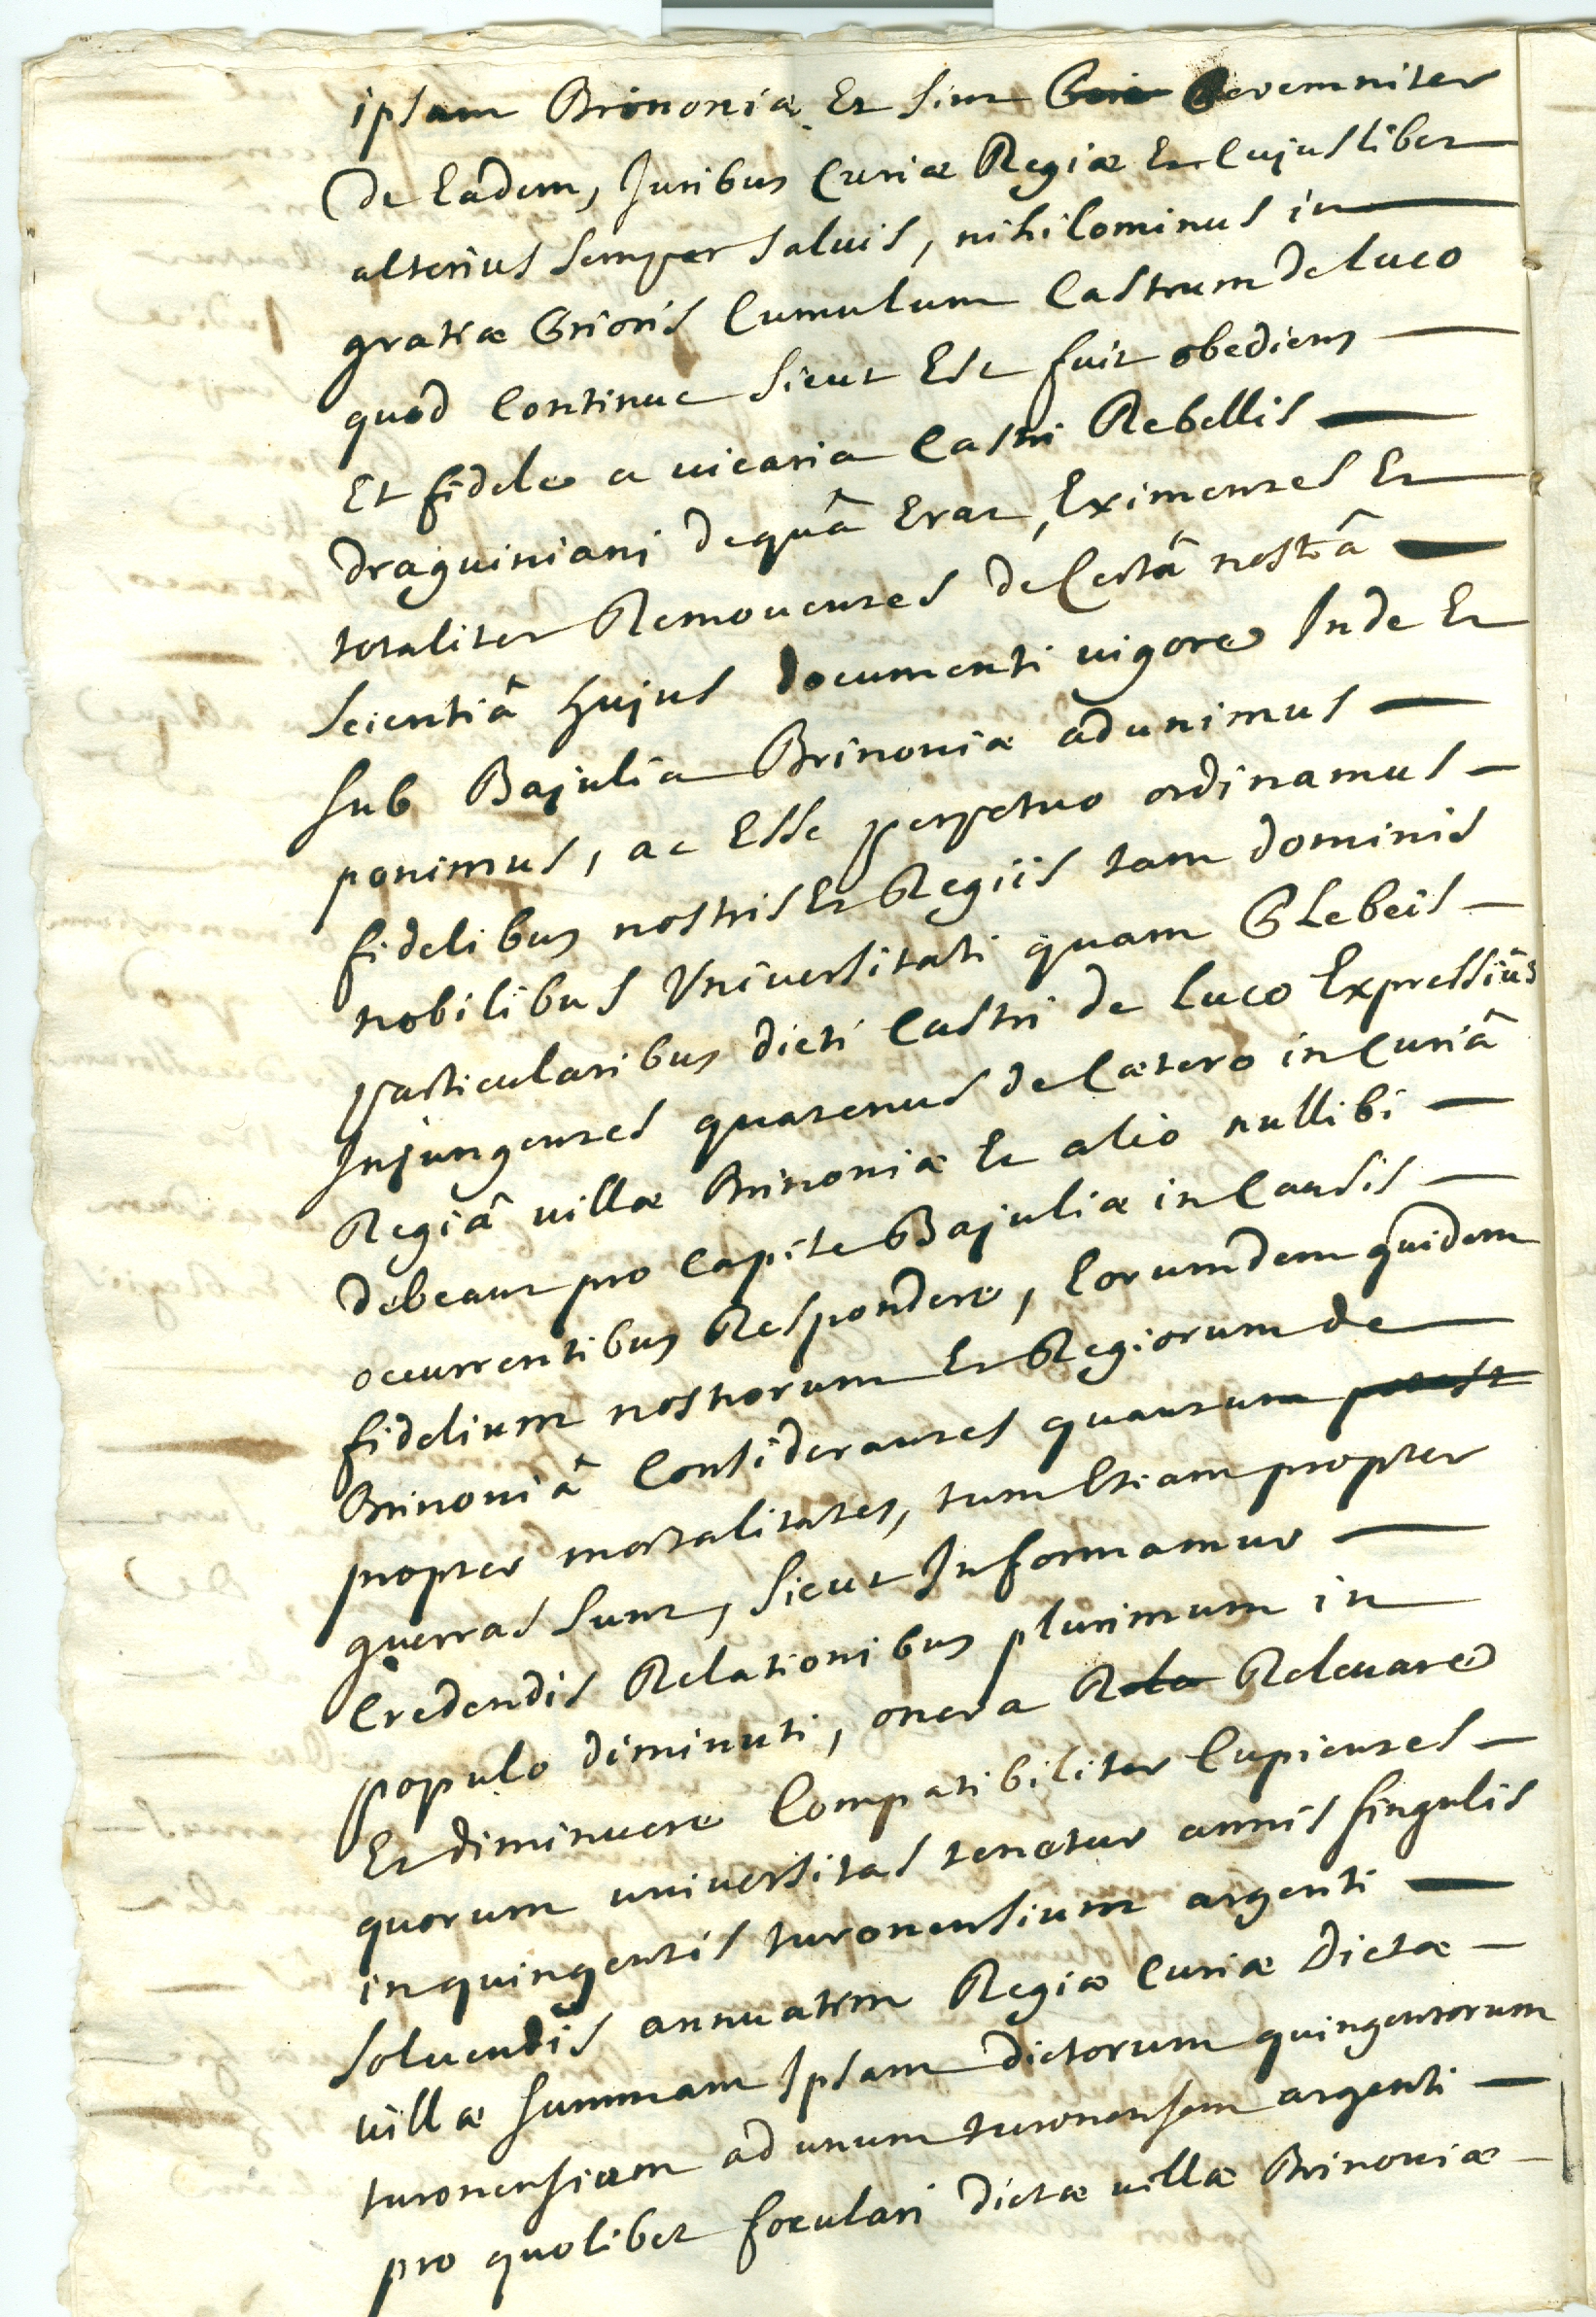 ipsam Brinoniæ Et sint Peremniter
de Eadem, Juribus Curiæ Regiæ Et Cujuslibet
alterius semper salvis, nihilominus in
gratiæ Prioris Cumulum Castrum de Luco
quod Continue sicut Est fuit obediens
Et fidele a vicaria Castri Rebellis
Draguiniani de quâ Erat, Eximentes Et
totaliter Removentes de Certâ nostrâ
scientiâ hujus documenti vigore Inde Et
sub Bajulia Brinoniæ adunimus
ponimus, ac Esse perpetuo ordinamus
fidelibus nostris Et Regiis tam dominis
nobilibus Vniversitati quam Plebeis
particularibus dicti Castri de Luco Expressiùs
Injungentes quatenus de Cætero in Curiâ
Regiâ villæ Brinoniæ Et alio nullibi
debeant pro Capite Bajuliæ in Causis
occurrentibus Respondere, Eorumdem quidem
fidelium nostrorum Et Regiorum de
Brinoniâ Considerantes quantum potest
propter mortalitates, tum Etiam propter
guerras sunt, sicut Informamur
Credendis Relationibus plurimum in
populo diminuti, onera Rele Relevare
Et diminuere Compatibiliter Cupientes
quorum universitas tenetur annis singulis
in quingentis turonensium argenti
solvendis annuatim Regiæ Curiæ Dictæ
villæ summam Ipsam dictorum quingentorum
turonensium ad unum turonensem argenti
pro quolibet foculari Dictæ villæ Brinoniæ